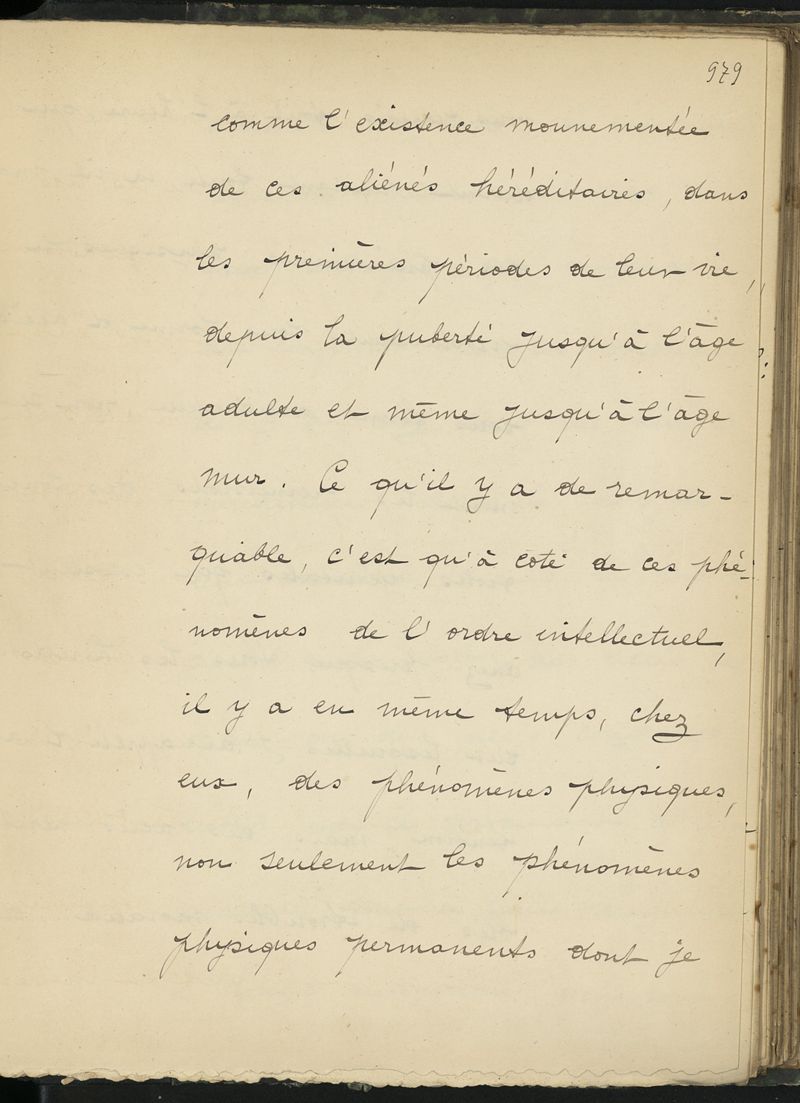 979
comme l'existence mouvementée
de ces aliénés héréditaires, dans
les premières périodes de leur vie,
depuis la puberté jusqu'à l'âge
adulte et même jusqu'à l'âge
mur. Ce qu'il y a de remar-
quable, c'est qu'à coté de ces phé-
nomènes de l'ordre intellectuel,
il y a en même temps, chez
eux, des phénomènes physiques,
non seulement les phénomènes
physiques permanents dont je